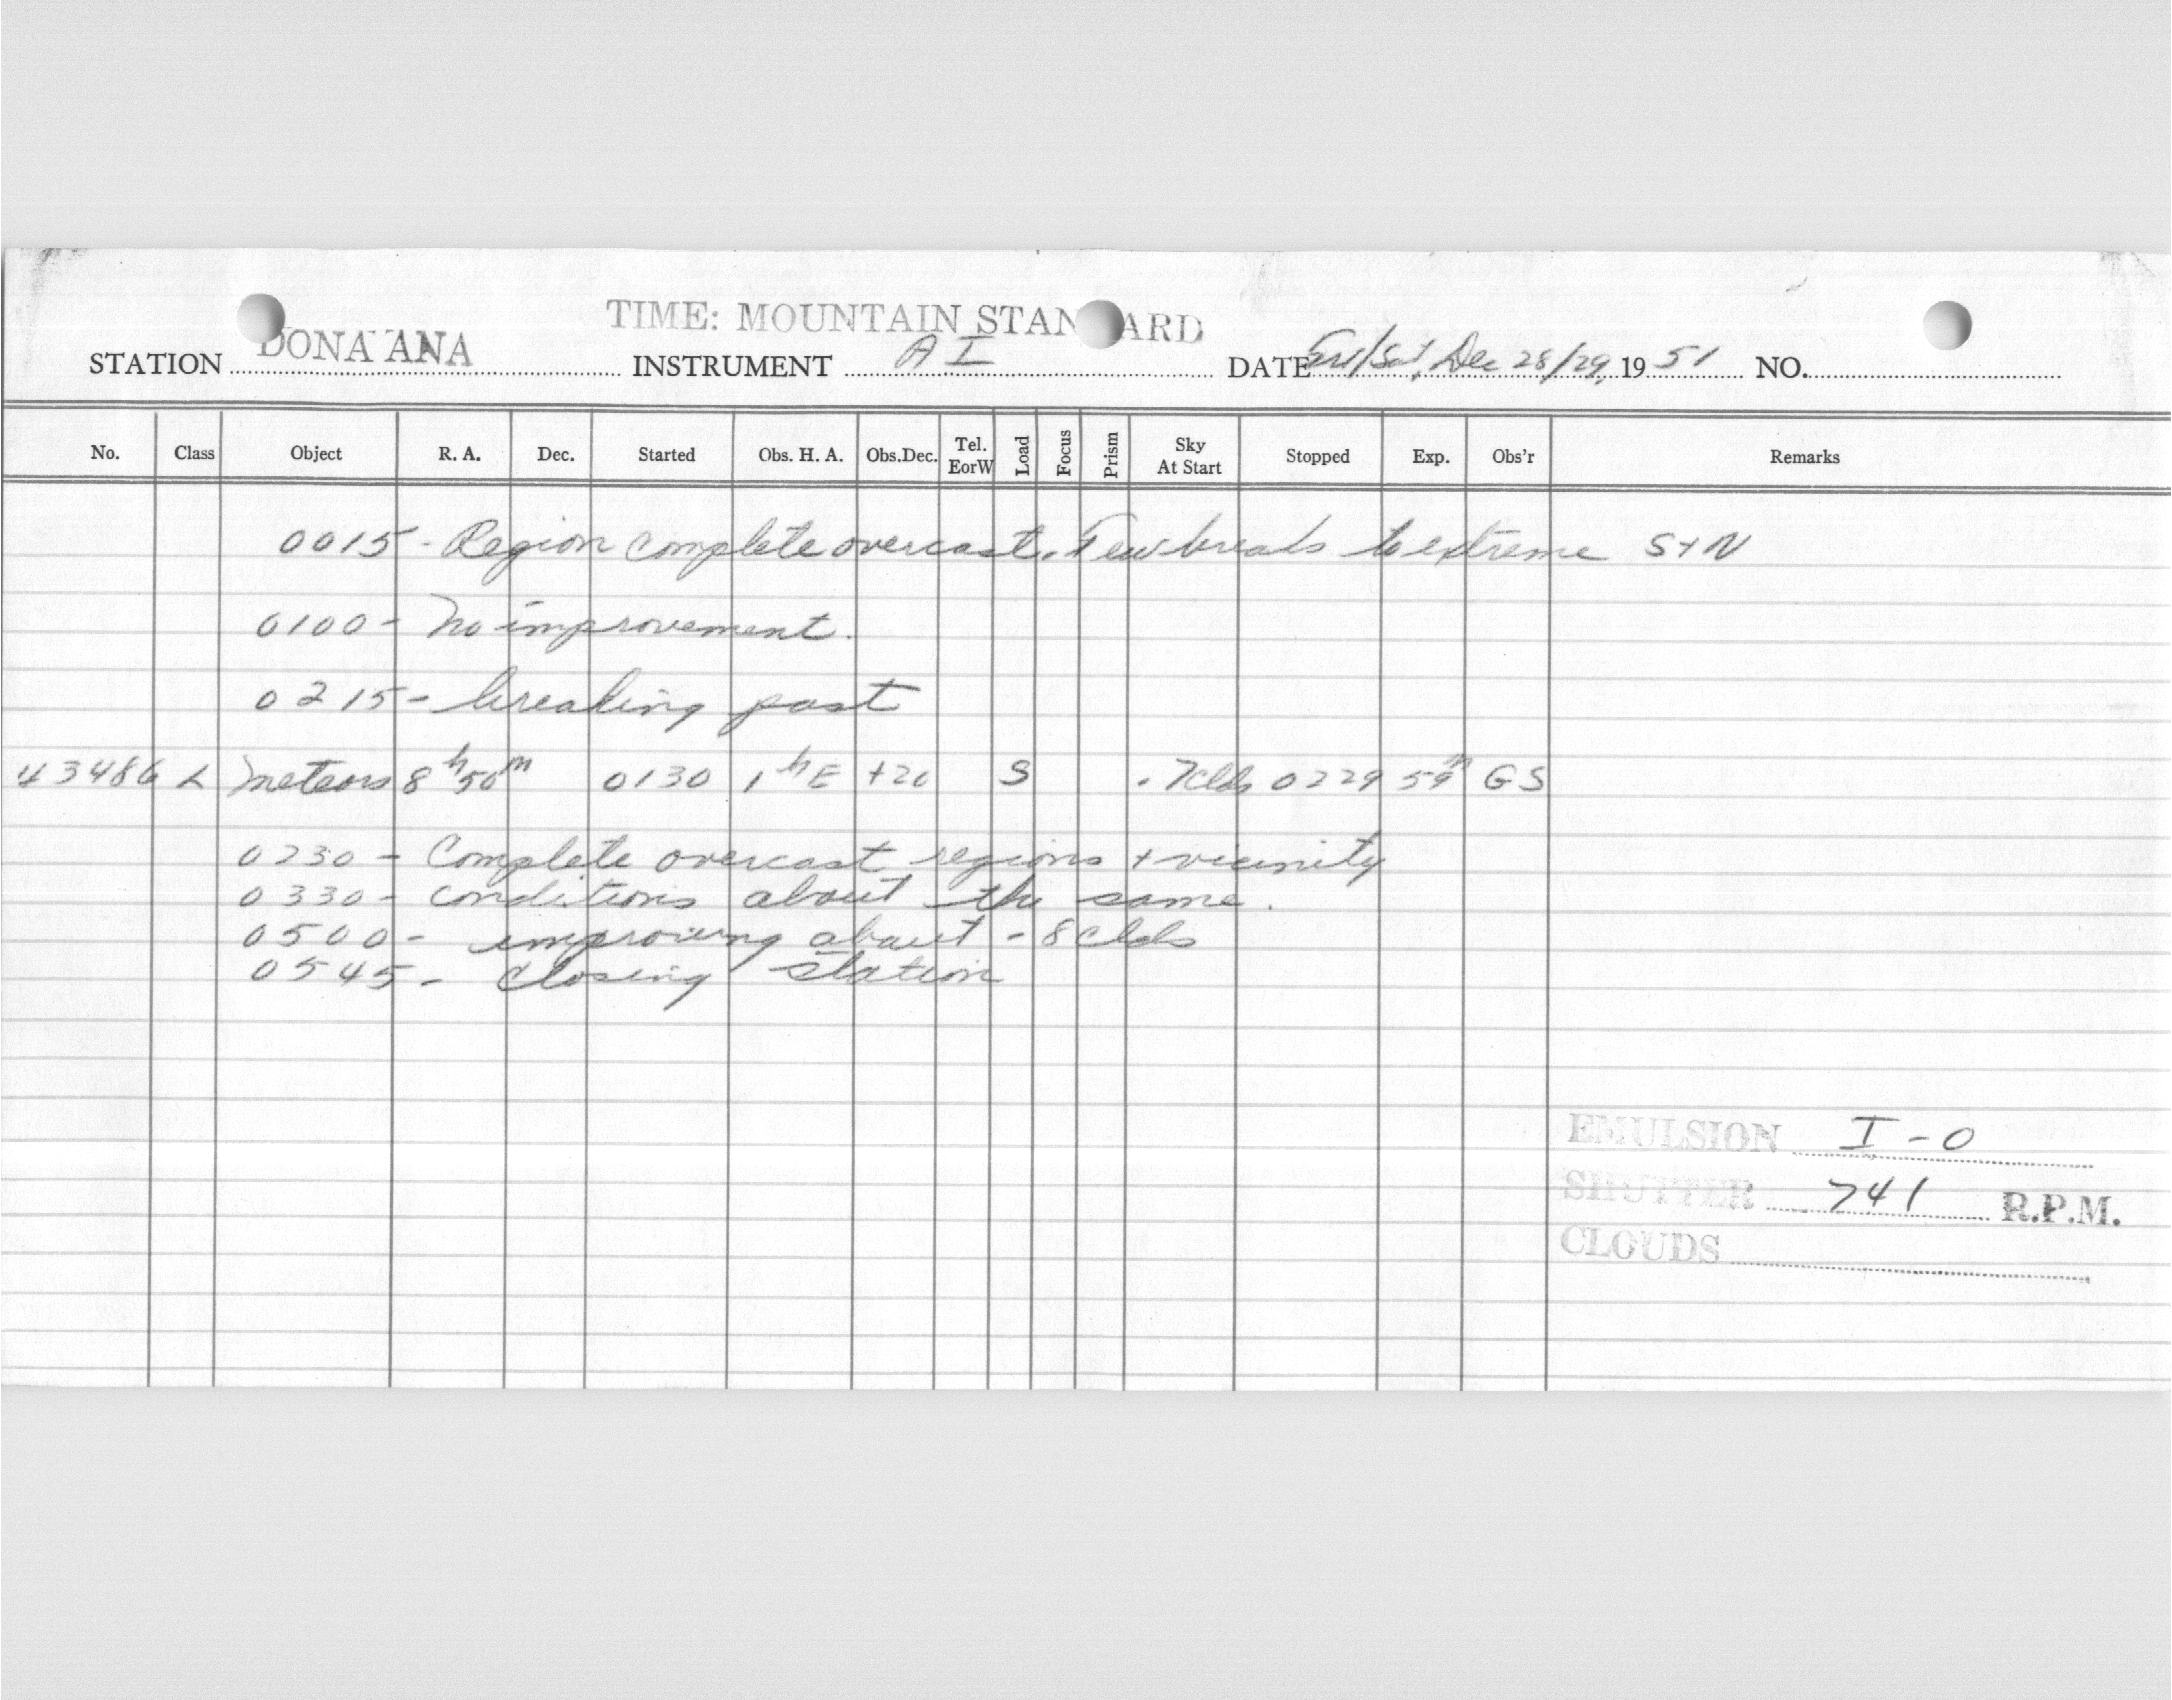 TIME: MOUNTAIN STANDARD
STATION DONA ANA INSTRUMENT A I DATE Fri/Sat, Dec 28/29, 1951 NO.
No. Class Object R. A. Dec. Started Obs. H. A. Obs.Dec. Tel. EorW Load Focus Prism Sky At Start Stopped Exp. Obs'r Remarks
0015 - Region complete overcast. Few breaks to extreme S + N
0100 - No improvement.
0215 - breaking past
43486 L Meteors 8h 50m 0130 1h E +20 S .7 clds 0229 59m GS
0230 - Complete overcast regions + vicinity
0330 - conditions about the same.
0500 - improving about - 8 clds
0545 - closing station
EMULSION I - O
SHUTTER 741 R.P.M.
CLOUDS